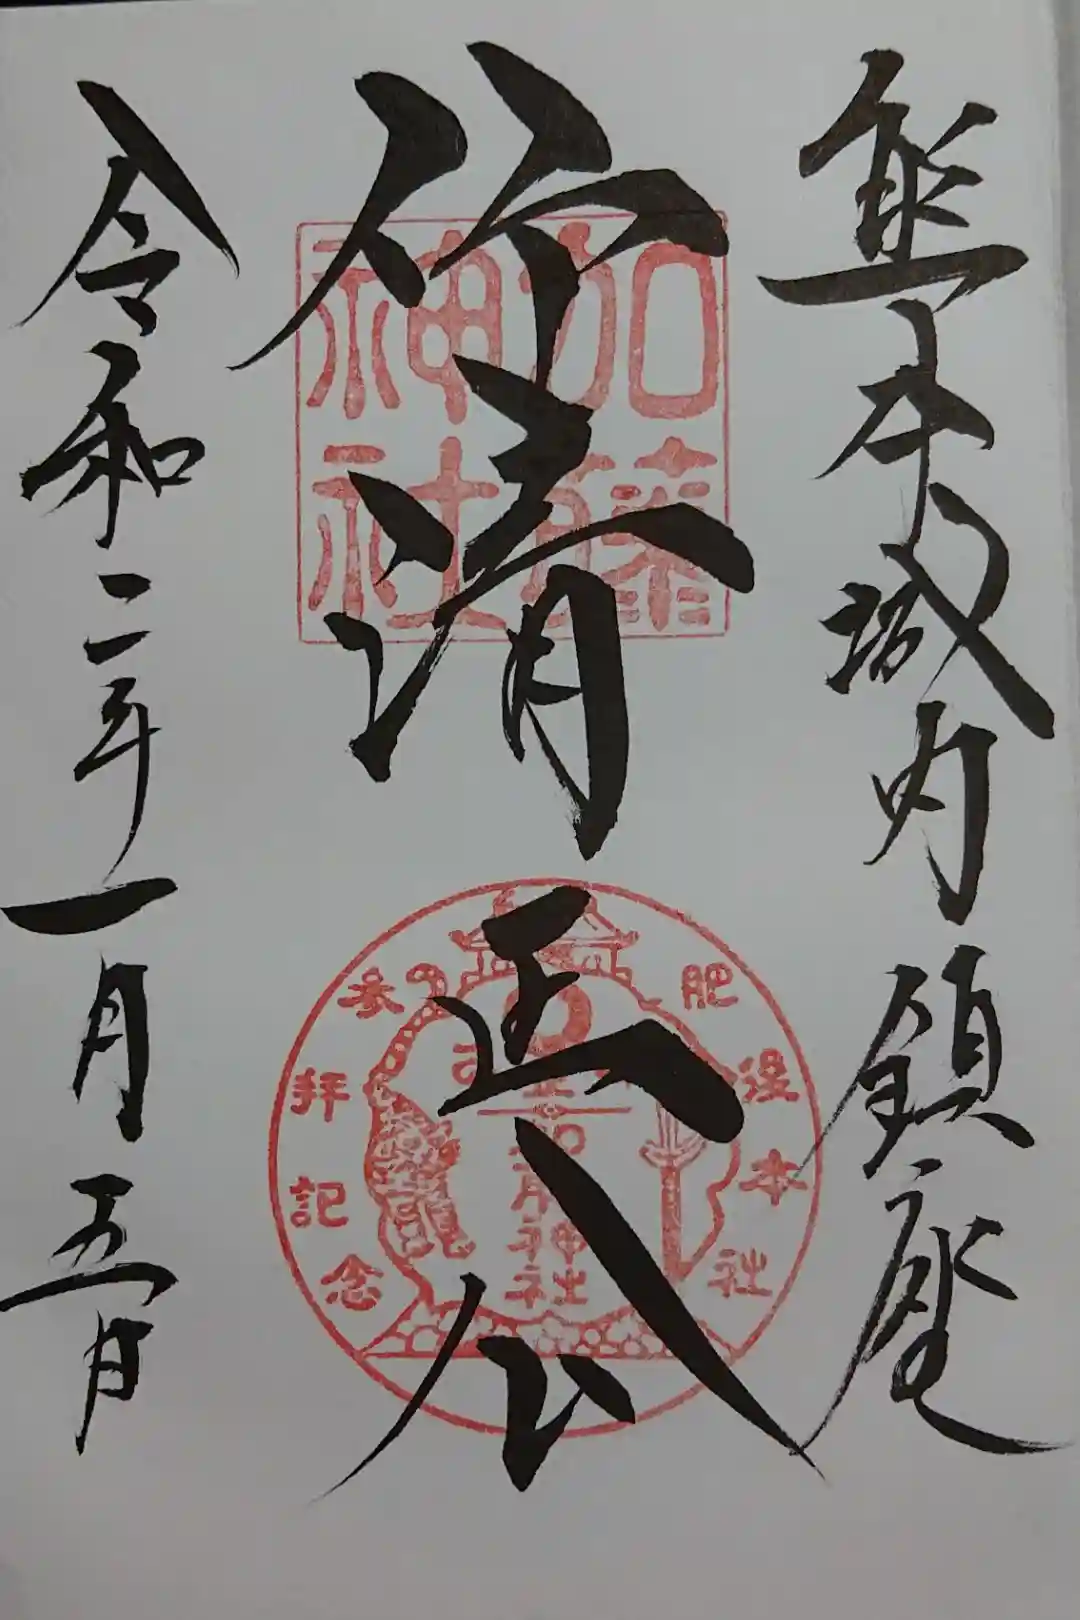 熊本城内鎮座
清正公
令和二年一月五日
加藤
神社
肥後本社
参拝記念
加藤神社